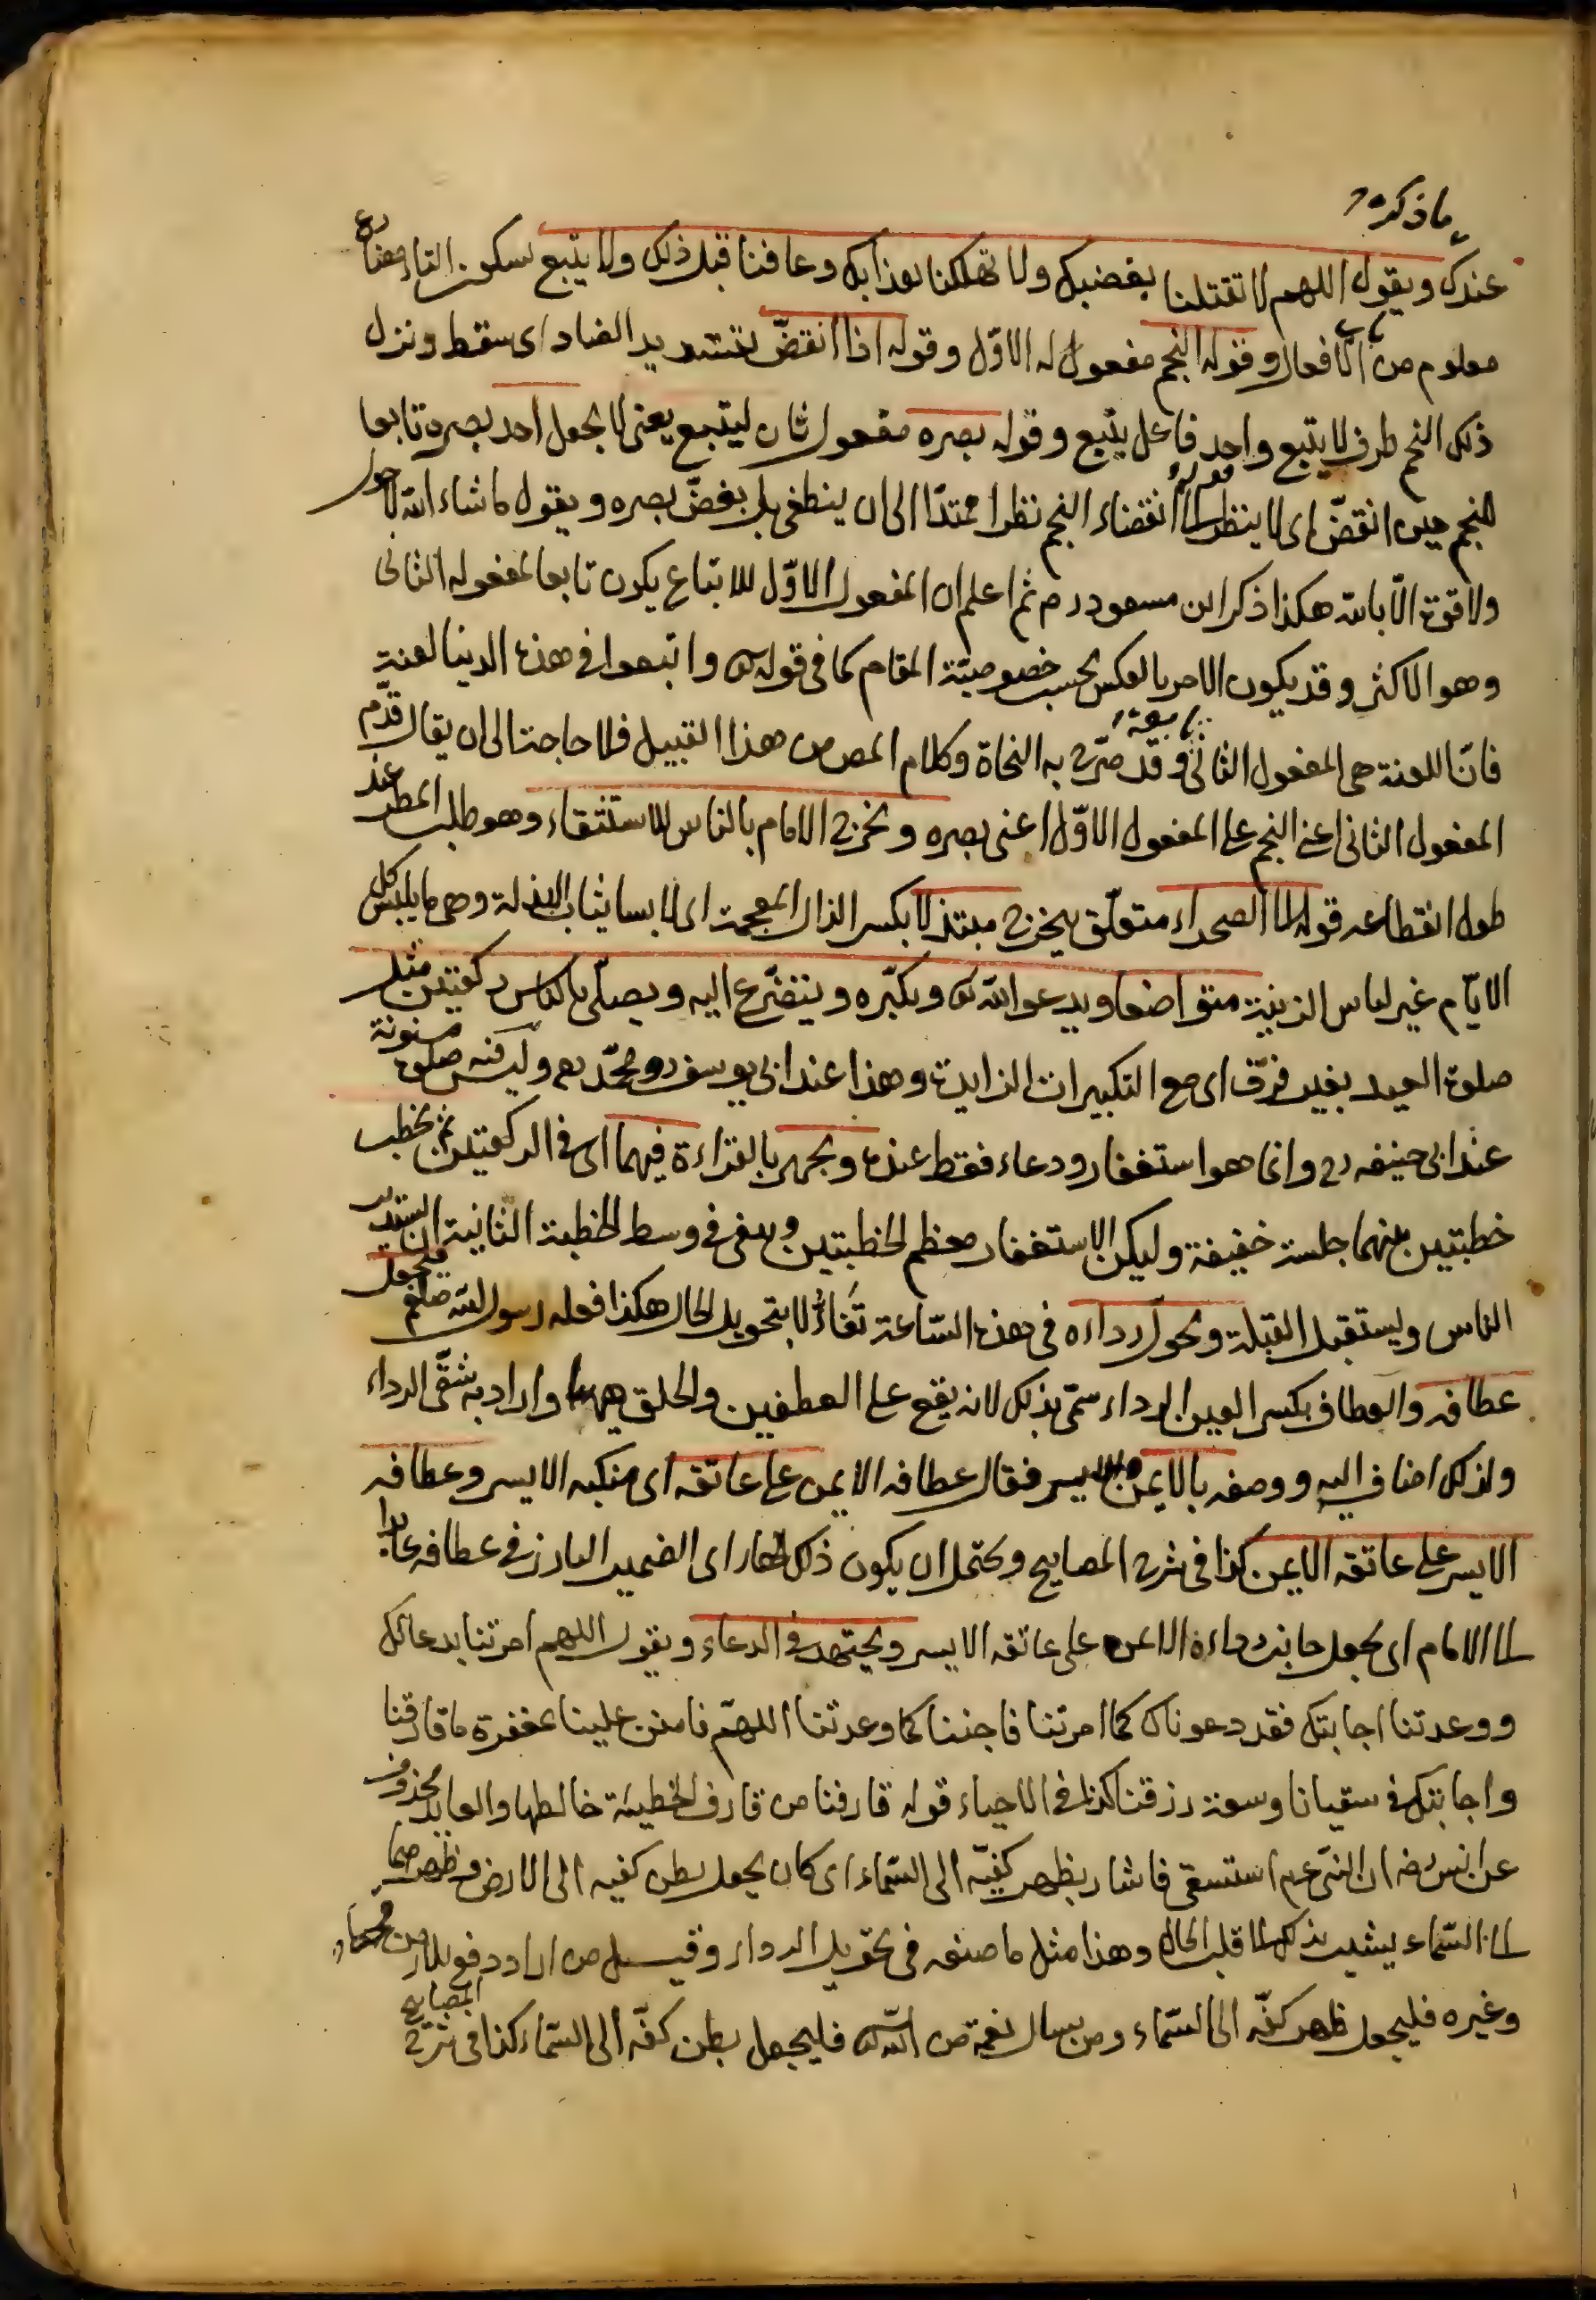 ما ذكره
عندك ويقول اللهم لا تقتلنا بغضبك ولا تهلكنا بعذابك وعافنا قبل ذلك ولا يتبع بسكون التاء مضارع
معلوم من باب الافعال وقوله النجم مفعول له الاوّل وقوله اذا انقضّ بتشديد الضاد اى سقط ونزل
ذلك النجم ظرف لا يتبع واحد فاعل يتبع وقوله بصره مفعول ثان ليتبع يعنى لا يجعل احد بصره تابعا
للنجم حين انقضّ اى لا ينظر الى انقضاء النجم نظرا ممتدّا الى ان ينطفى بل يغضّ بصره ويقول ما شاء الله لا حول
ولا قوة الّا بالله هكذا ذكر ابن مسعود رم ثم اعلم ان المفعول الاوّل للاتباع يكون تابعا لمفعوله الثانى
وهو الاكثر وقد يكون الامر بالعكس بحسب خصوصيّة المقام كما فى قوله تع واتبعوا فى هذه الدنيا لعنة
فانّ اللعنة هى المفعول الثانى تابعة وقد صرّح به النحاة وكلام المص من هذا القبيل فلا حاجة الى ان يقال قدّم
المفعول الثانى اعنى النجم على المفعول الاوّل اعنى بصره ويخرج الامام بالناس للاستسقاء وهو طلب المطر عند
طول انقطاعه قوله الى الصحراء متعلّق بيخرج مبتذلا بكسر الذال المعجمة اى لابسا ثياب البذلة وهى ما يلبس كل
الايّام غير لباس الزينة متواضعا ويدعو الله تع ويكبّره ويتضرّع اليه ويصلّى بالناس ركعتين مثل
صلوة العيد بغير فرق اى مع التكبيرات الزايدة وهذا عند ابى يوسف ومحمّد رح وليس فيه صلوة مسنونة
عند ابى حنيفه رح وانما هو استغفار ودعاء فقط عنده ويجهر بالقراءة فيهما اى فى الركعتين ثم يخطب
خطبتين بينهما جلسة خفيفة وليكن الاستغفار معظم الخطبتين وينبغى فى وسط الخطبة الثانية ان يستدبر
الناس ويستقبل القبلة ويحول رداءه فى هذه السّاعة تفاؤلا بتحويل الحال هكذا فعله رسول الله صلعم فيجعل
عطافه والعطاف بكسر العين الرداء سمّى بذلك لانه يقع على العطفين واراد به شقّى الرداء
ولذلك اضاف اليه ووصفه بالايمن والايسر فقال عطافه الايمن على عاتقه اى منكبه الايسر وعطافه
الايسر على عاتقه الايمن كذا فى شرح المصابيح ويحتمل ان يكون ذلك الهاء اى الضمير البارز فى عطافه عائدا
الى الامام اى يجعل جانب رداءه الايمن على عاتقه الايسر ويجتهد فى الدعاء ويقول اللهم امرتنا بدعائك
ووعدتنا اجابتك فقد دعوناك كما امرتنا فاجبنا كما وعدتنا اللهمّ فامنن علينا بمغفرة ما قارفنا
واجابتك فى سقيانا وسعة رزقنا كذا فى الاحياء قوله قارفنا من قارف الخطيئة خالطها والعايد محذوف
عن انس رضه ان النبى عم استسقى فاشار بظهر كفيّه الى السّماء اى كان يجعل بطن كفيه الى الارض وظهرهما
الى السّماء يشير بذلك الى قلب الحال وهذا مثل ما صنعه فى تحويل الرداء وقيل من اراد دفع بلاء من
وغيره فليجعل ظهر كفّه الى السّماء ومن يسال نعمة من الله تع فليجعل بطن كفّه الى السّماء كذا فى شرح المصابيح